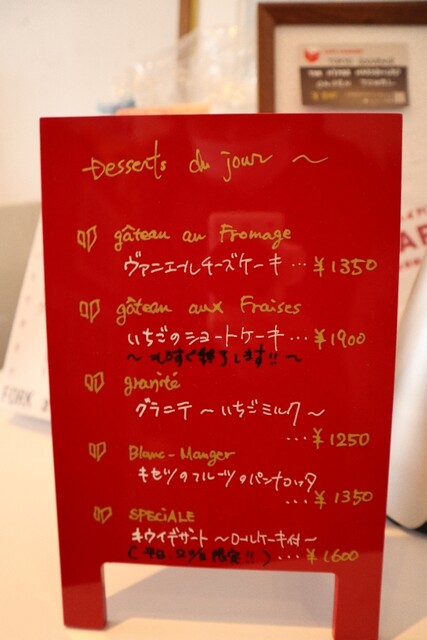 Desserts du jour ~
gâteau au Fromage
ヴァニエールチーズケーキ … ¥1350
gâteau aux Fraises
いちごのショートケーキ … ¥1900
〜もうすぐ終了します!!〜
granité
グラニテ 〜いちごミルク〜
… ¥1250
Blanc-Manger
キセツのフルーツのパンナコッタ
… ¥1350
SPECiALE
キウイデザート 〜ロールケーキ付〜
(平日 限定!!) … ¥1600
FORK